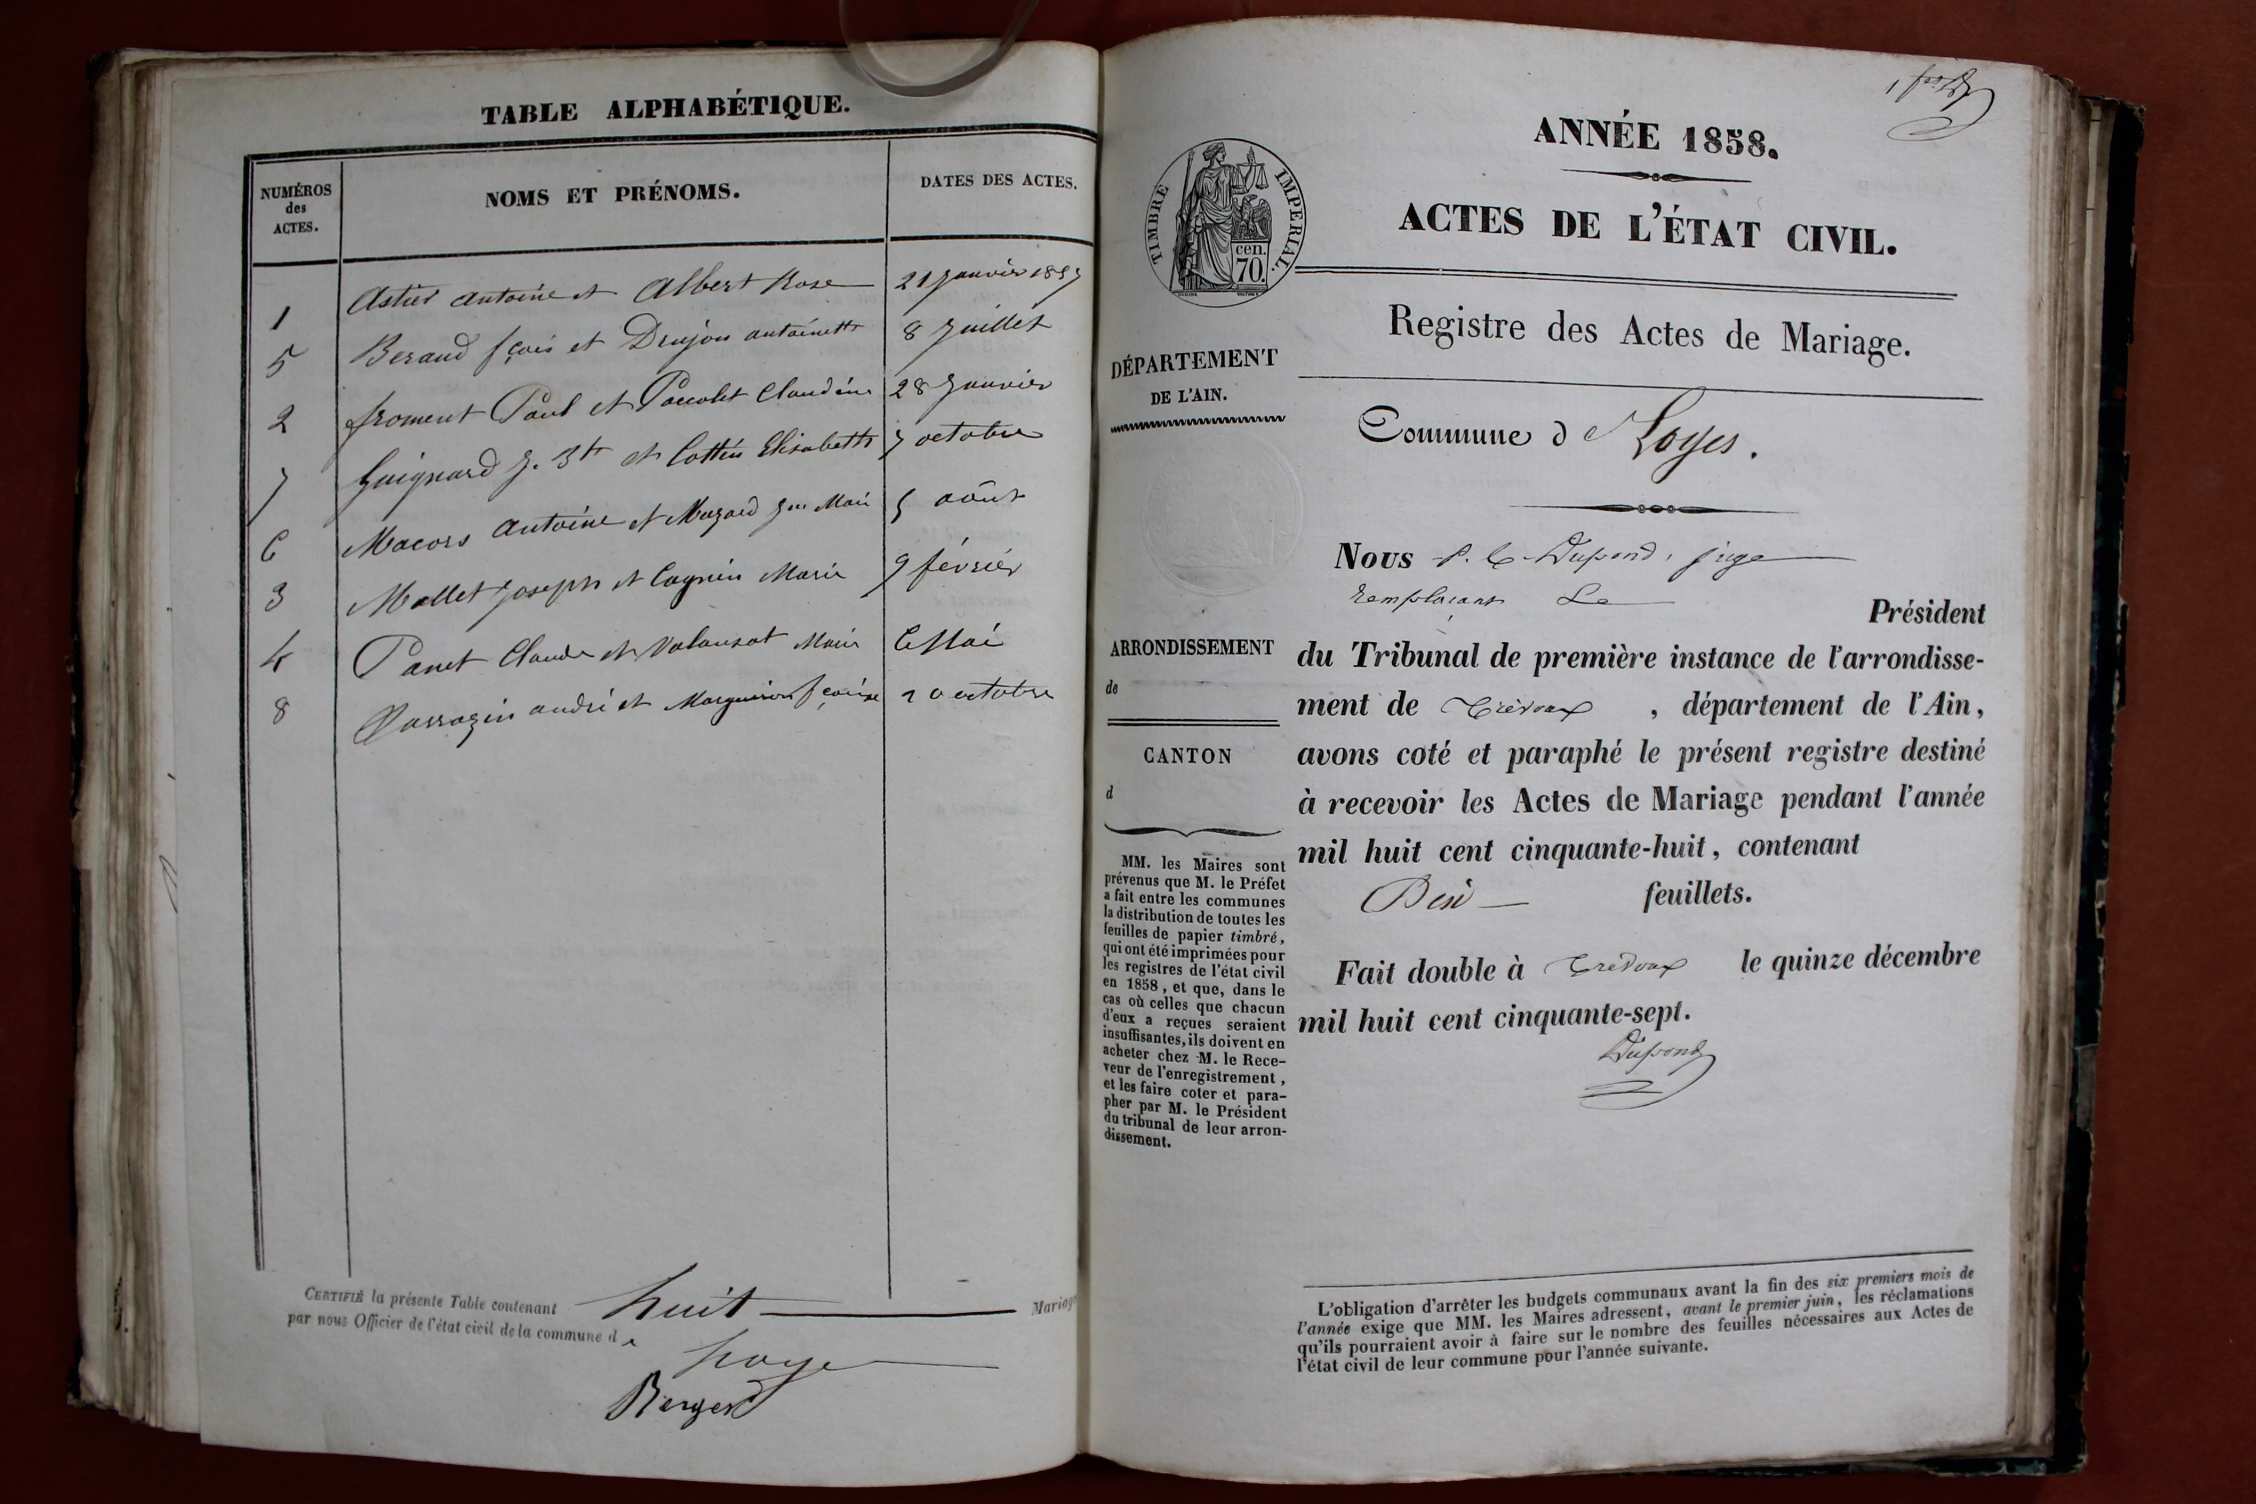 TABLE ALPHABÉTIQUE.
NUMÉROS
des
ACTES.
NOMS ET PRÉNOMS.
DATES DES ACTES.
1 Astier antoine et Albert Rose 21 Janvier 1857
5 Beraud fçois et Drujon antoinette 8 Juillet
2 froment Paul et Paccolet Claudine 28 Janvier
7 Guignard J. Bte et Cottin Elisabeth 7 octobre
6 Macors antoine et Mazard Jne Marie 5 août
3 Mollet Joseph et Cognin Marie 9 février
4 Panet Claude et Valansot Marie 6 Mai
8 Sarrazin andré et fçoise 20 octobre
CERTIFIÉ la présente Table contenant huit Mariage
par nous Officier de l'état civil de la commune de
Loye
1 f.
ANNÉE 1858.
ACTES DE L'ÉTAT CIVIL.
TIMBRE IMPERIAL.
cen.
70.
Registre des Actes de Mariage.
DÉPARTEMENT
DE L'AIN.
Commune d Loyes.
Nous Dupond, juge
remplaçant Le
Président
ARRONDISSEMENT
de
du Tribunal de première instance de l'arrondisse-
ment de Trévoux , département de l'Ain,
avons coté et paraphé le présent registre destiné
à recevoir les Actes de Mariage pendant l'année
mil huit cent cinquante-huit, contenant
feuillets.
Fait double à Trévoux le quinze décembre
mil huit cent cinquante-sept.
Dupond
CANTON
d
MM. les Maires sont
prévenus que M. le Préfet
a fait entre les communes
la distribution de toutes les
feuilles de papier timbré,
qui ont été imprimées pour
les registres de l'état civil
en 1858, et que, dans le
cas où celles que chacun
d'eux a reçues seraient
insuffisantes, ils doivent en
acheter chez M. le Rece-
veur de l'enregistrement,
et les faire coter et para-
pher par M. le Président
du tribunal de leur arron-
dissement.
L'obligation d'arrêter les budgets communaux avant la fin des six premiers mois de
l'année exige que MM. les Maires adressent, avant le premier juin, les réclamations
qu'ils pourraient avoir à faire sur le nombre des feuilles nécessaires aux Actes de
l'état civil de leur commune pour l'année suivante.